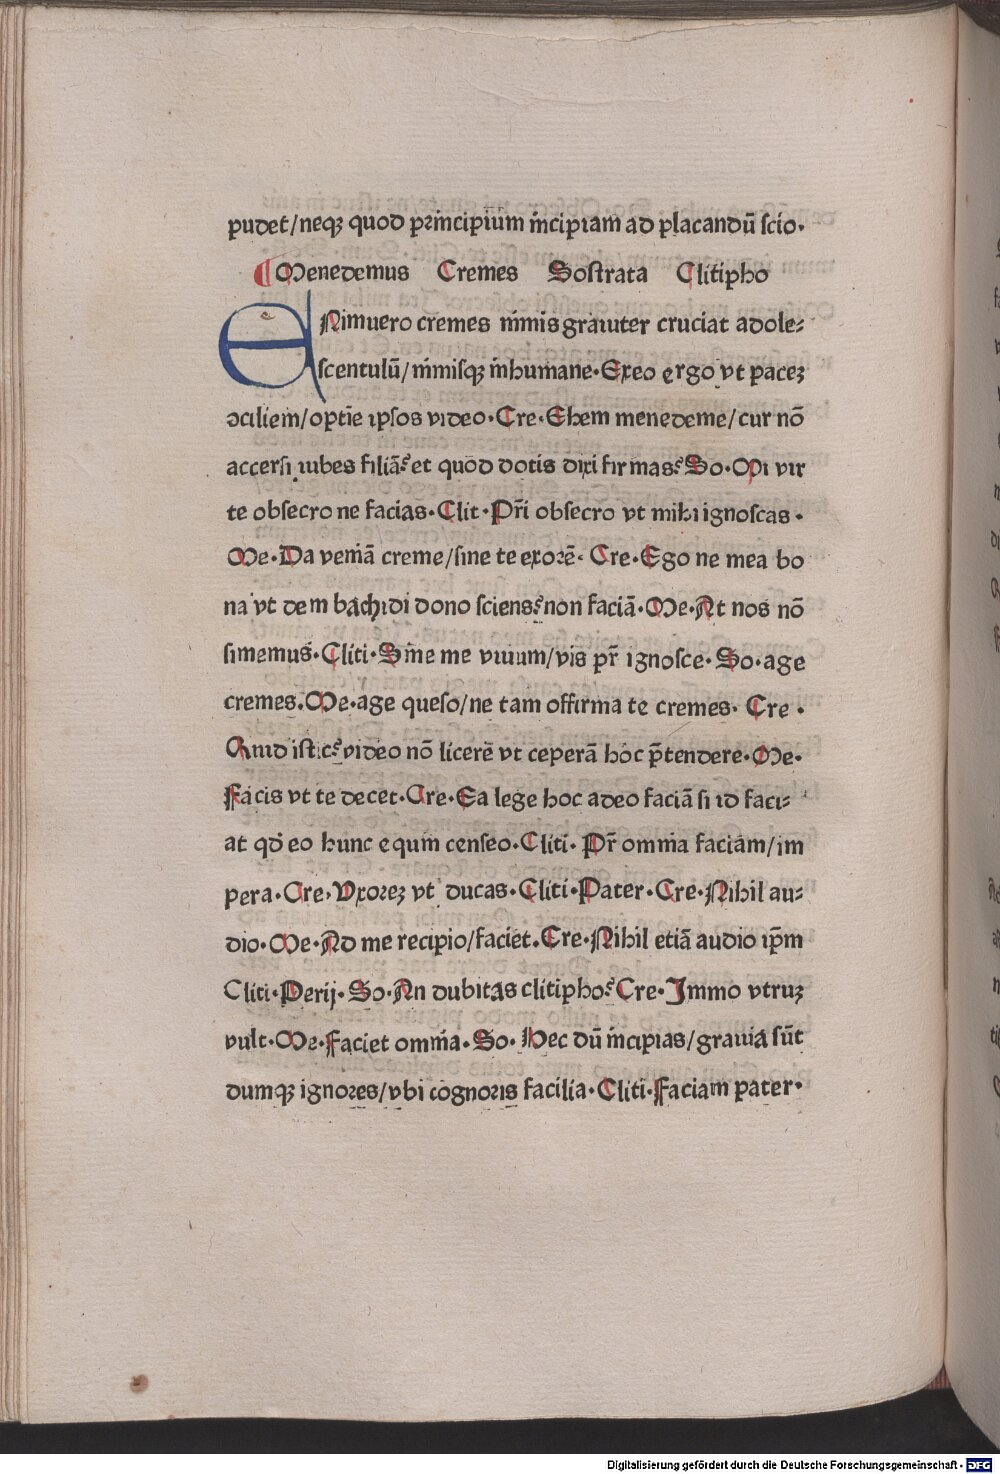 pudet/neqꝫ quod principium incipiam ad placandū scio.
¶ Menedemus Cremes Sostrata Clitipho
ENimuero cremes nimis grauiter cruciat adole⸗
scentulū/nimisqꝫ inhumane. Exeo ergo vt pacez
ↄciliem/optīe ipsos video. Cre. Ehem menedeme/cur nō
accersi iubes filiā? et quod dotis dixi firmas? So. Mi vir
te obsecro ne facias. Clit. Pr̄i obsecro vt mihi ignoscas.
Me. Da veniā creme/sine te exorē. Cre. Ego ne mea bo
na vt dem bachidi dono sciens? non faciā. Me. At nos nō
sinemus. Cliti. Sine me viuum/vis pr̄ ignosce. So. age
cremes. Me. age queso/ne tam offirma te cremes. Cre.
Quid istic? video nō licerē vt ceperā hoc p̄tendere. Me.
Facis vt te decet. Cre. Ea lege hoc adeo faciā si id faci⸗
at qd̄ eo hunc equm censeo. Cliti. Pr̄ omnia faciam/im
pera. Cre. Vxorez vt ducas. Cliti. Pater. Cre. Nihil au⸗
dio. Me. Ad me recipio/faciet. Cre. Nihil etiā audio ip̄m
Cliti. Perij. So. An dubitas clitipho? Cre. Immo vtruz
vult. Me. Faciet omnia. So. Hec dū incipias/grauia sūt
dumqꝫ ignores/vbi cognoris facilia. Cliti. Faciam pater.
Digitalisierung gefördert durch die Deutsche Forschungsgemeinschaft - DFG